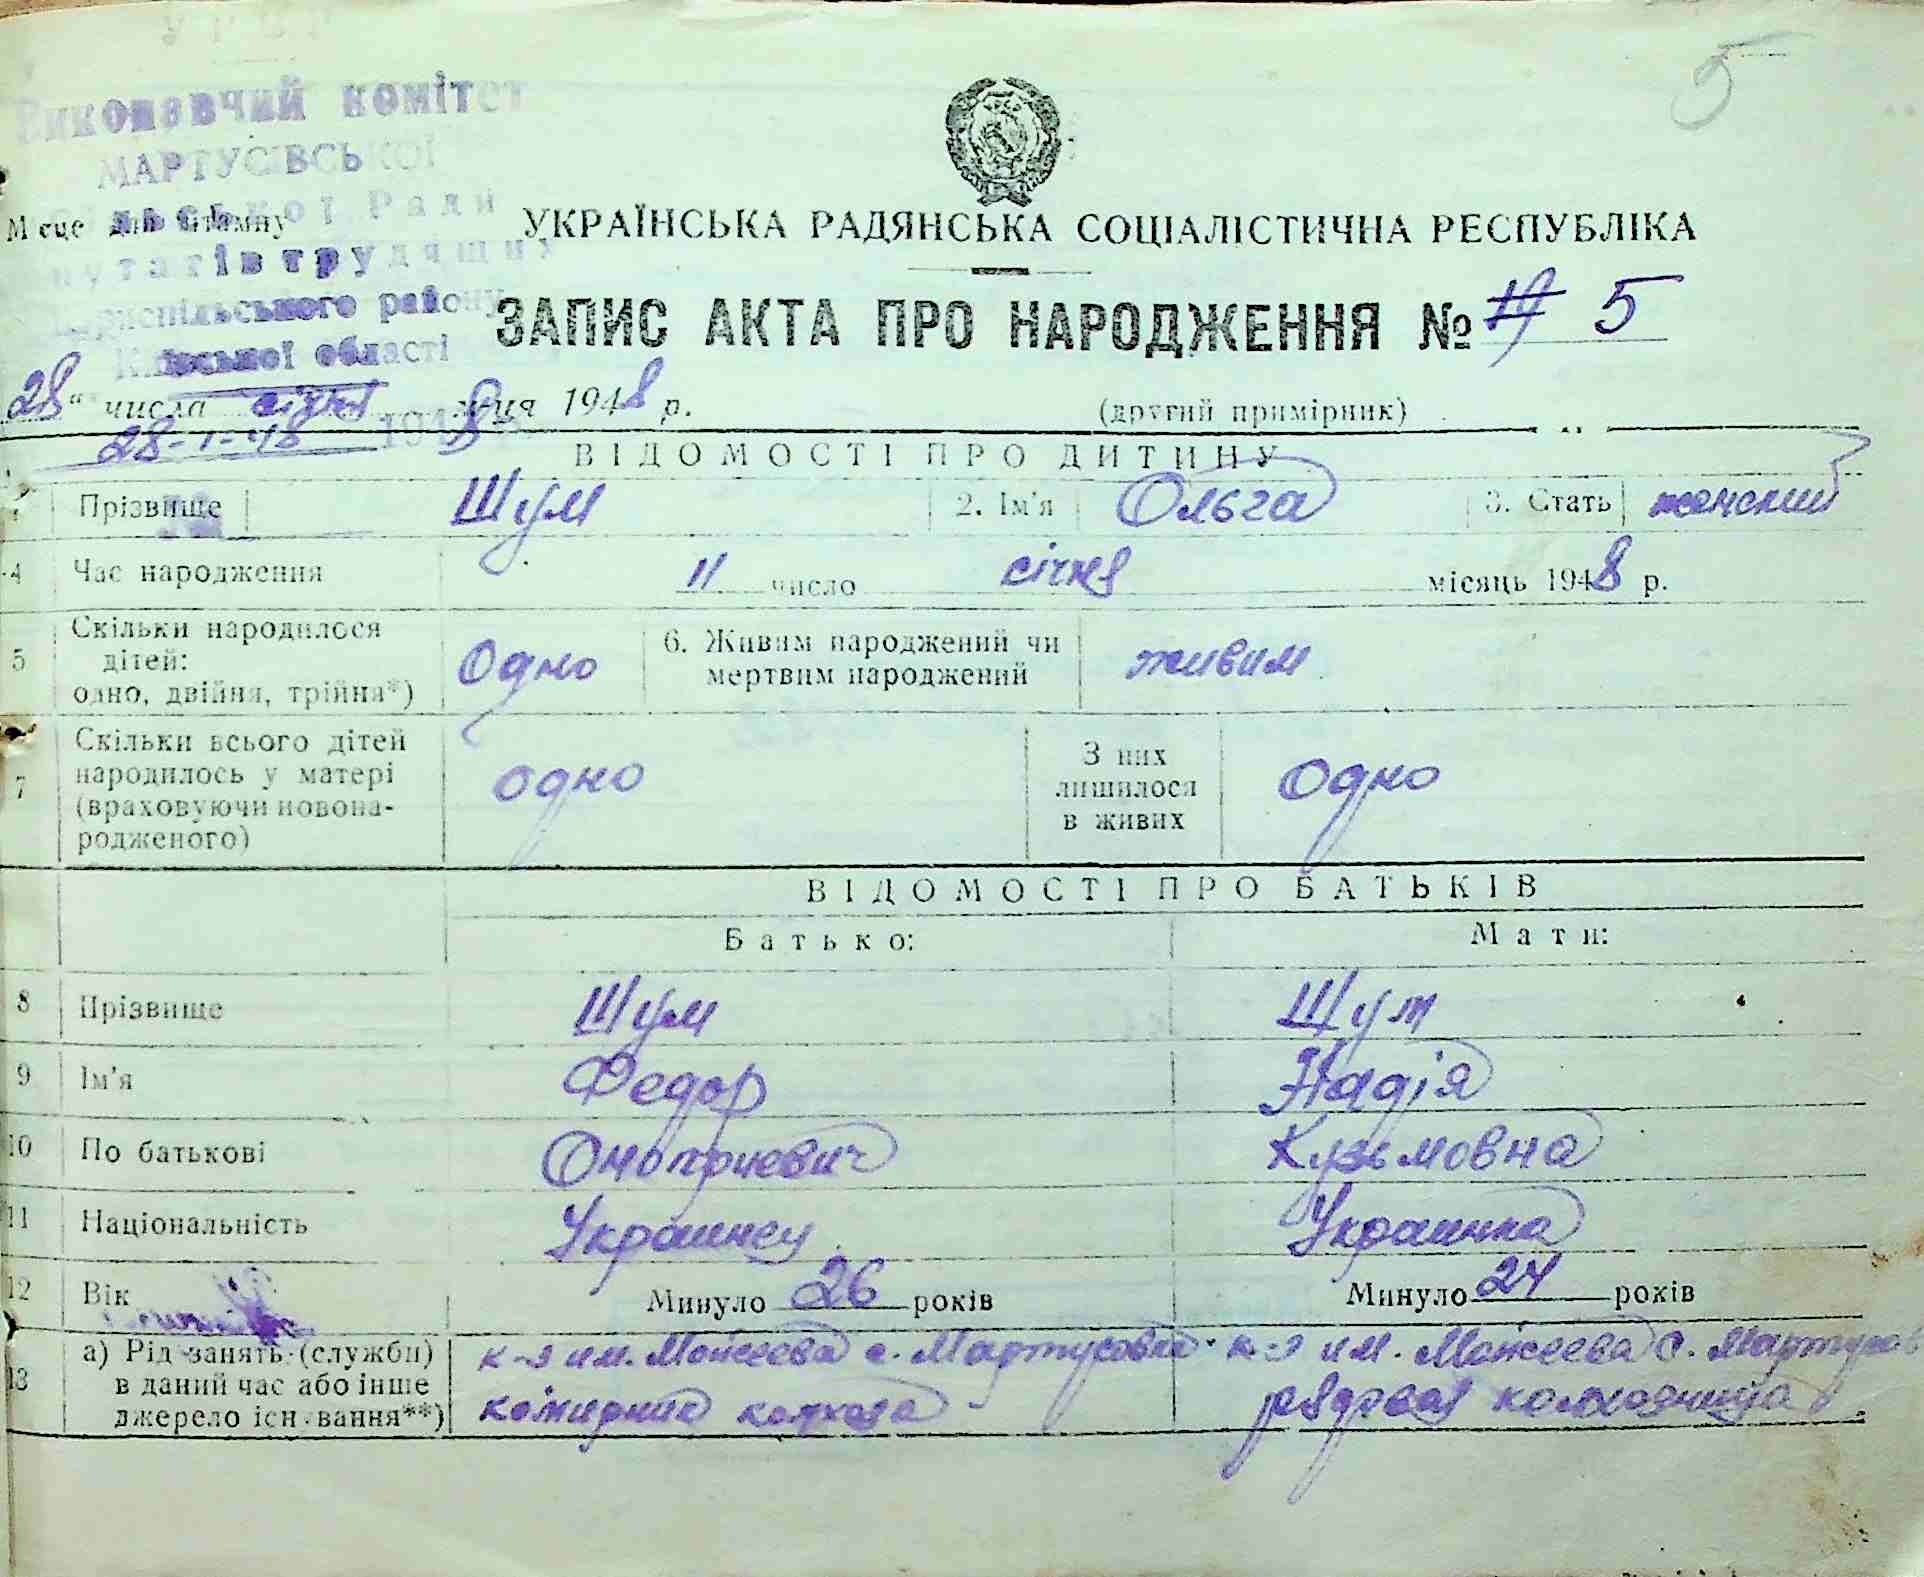 5
Виконавчий комітет
МАРТУСІВСЬКОЇ
сільської Ради
Місце для штампу
УКРАЇНСЬКА РАДЯНСЬКА СОЦІАЛІСТИЧНА РЕСПУБЛІКА
депутатів трудящих
Бориспільського району
ЗАПИС АКТА ПРО НАРОДЖЕННЯ № 5
Київської області
28 " числа січня м-ця 1948 р.
(другий примірник)
28-I-48 1948
ВІДОМОСТІ ПРО ДИТИНУ
Прізвище Шум 2. Ім'я Ольга 3. Стать женский
4 Час народження 11 число січня місяць 1948 р.
5 Скільки народилося дітей: одно, двійня, трійня*) Одно 6. Живим народжений чи мертвим народжений живим
7 Скільки всього дітей народилось у матері (враховуючи новона-родженого) одно З них лишилося в живих Одно
ВІДОМОСТІ ПРО БАТЬКІВ
Батько: Мати:
8 Прізвище Шум Шум
9 Ім'я Федор Надія
10 По батькові Оноприевич Кузьмовна
11 Національність Украинец Украинка
12 Вік Минуло 26 років Минуло 24 років
13 а) Рід занять (служби) в даний час або інше джерело існування**)
к-з им. Моисеева с. Мартусовка
колхоза
к-з им. Моисеева с. Мартусов
рядовая колхозница